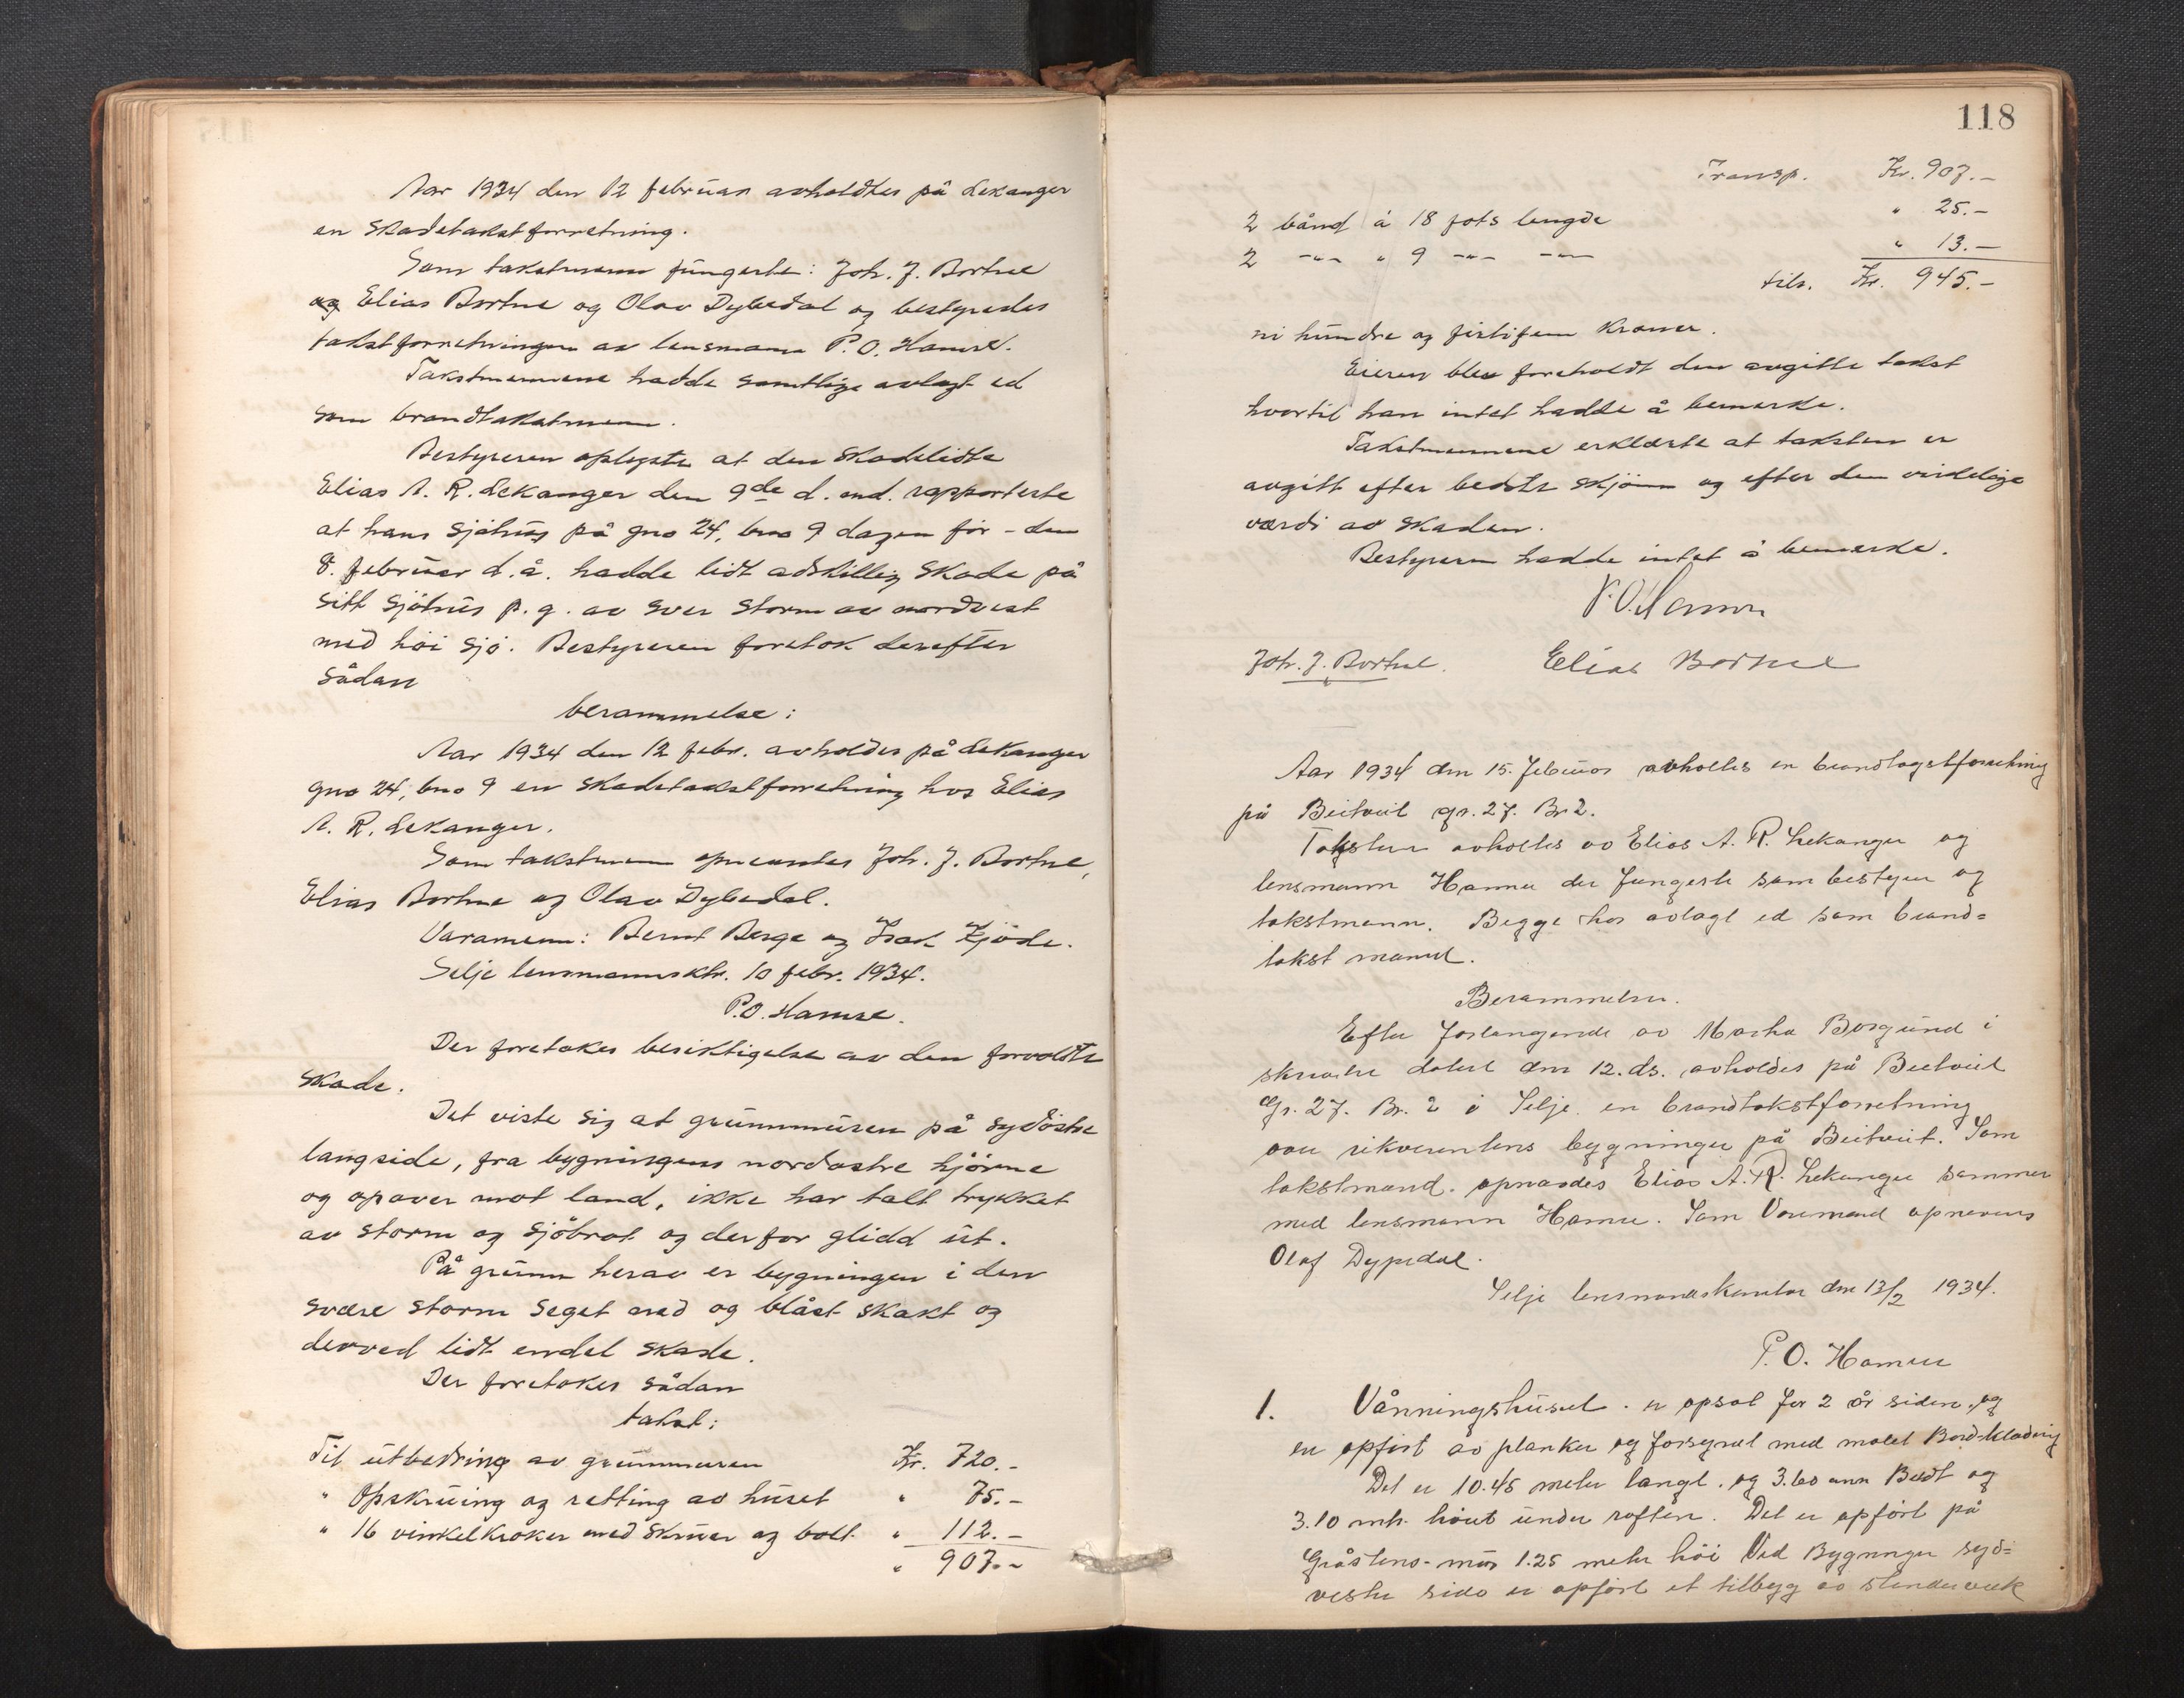 Aar 1934 den 12 februar avholdtes på Lekanger
en skadetakstforretning.
Som takstmenn fungerte: Joh. J. Bortne
og Elias Bortne og Olav Dybedal og bestyredes
takstforretningen av lensmann P. O. Hamre.
Takstmennene hadde samtlige avlagt ed
som brandtakstmenn.
Bestyreren oplyste at den skadelidte
Elias A. R. Lekanger den 9de d. md. rapporterte
at hans sjöhus på gno 24, bno 9 dagen før - den
8. februar d. å. hadde lidt adskillig skade på
sitt sjöhus p. g. av svær storm av nordvest
med höi sjö. Bestyreren foretok derefter
sådan
berammelse:
Aar 1934 den 12 febr. avholdes på Lekanger
gno 24, bno 9 en skadetakstforretning hos Elias
A. R. Lekanger.
Som takstmenn opnevntes Joh. J. Bortne,
Elias Bortne og Olav Dybedal.
Varamenn: Bernt Berge og Isak Kjöde.
Selje lensmannsktr. 10 febr. 1934.
P.O. Hamre.
Der foretokes besiktigelse av den forvoldte
skade.
Det viste sig at grunnmuren på sydöstre
langside, fra bygningens nordostre hjörne
og opover mot land, ikke har tålt trykket
av storm og sjöbrot og derfor glidd ut.
På grunn herav er bygningen i den
svære storm seget ned og blåst skakt og
derved lidt endel skade.
Der foretokes sådan
takst:
Til utbedring av grunnmuren Kr. 720.-
" Opskruing og retting av huset " 75.-
" 16 vinkelkroker med skruer og bolt " 112.-
" 907.-
118
Transp. Kr. 907.-
2 bånd á 18 fots lengde " 25.-
2 -"- " 9 -"- -"- " 13.-
tils. Kr. 945.-
ni hundre og firtifem kroner.
Eieren blev foreholdt den avgitte takst
hvortil han intet hadde å bemerke.
Takstmennene erklærte at taksten er
avgitt efter bedste skjönn og efter den virkelige
værdi av skaden.
Bestyreren hadde intet å bemerke.
P.O. Hamre
Joh. J. Bortne. Elias Bortne
Aar 1934 den 15. Februar avholtes en brandtagstforretning
på Beitveit gr. 27. Br. 2.
Taksten avholtes av Elias A. R. Lekanger og
lensmann Hamre der fungerte som bestyrer og
takstmann. Begge har avlagt ed som brand=
takst mand.
Berammelse.
Efter forlangende av Marha Borgund i
skrivelse datert den 12. ds. avholdes på Beitveit
Gr. 27. Br. 2 i Selje en brandtakstforretning
over rikverentens bygninger på Beitveit. Som
takstmand. opnævnes Elias A. R. Lekanger sammen
med lensmann Hamre. Som Varemand opnevnes
Olaf Dypedal.
Selje lensmandskontor den 13/2 1934.
P. O. Hamre
1. Vånningshuset. er opsat for 2 år siden. og
er opfört av planker og forsynet med malet Bord-kledning
Det er 10.45 meter langt. og 3.60 Bredt og
3.10 mtr. höit under raften. Det er opfört på
Gråstens-mur 1.25 meter höi Ved Bygningen syd=
vestre side er opfört et tilbygg av stenderverk